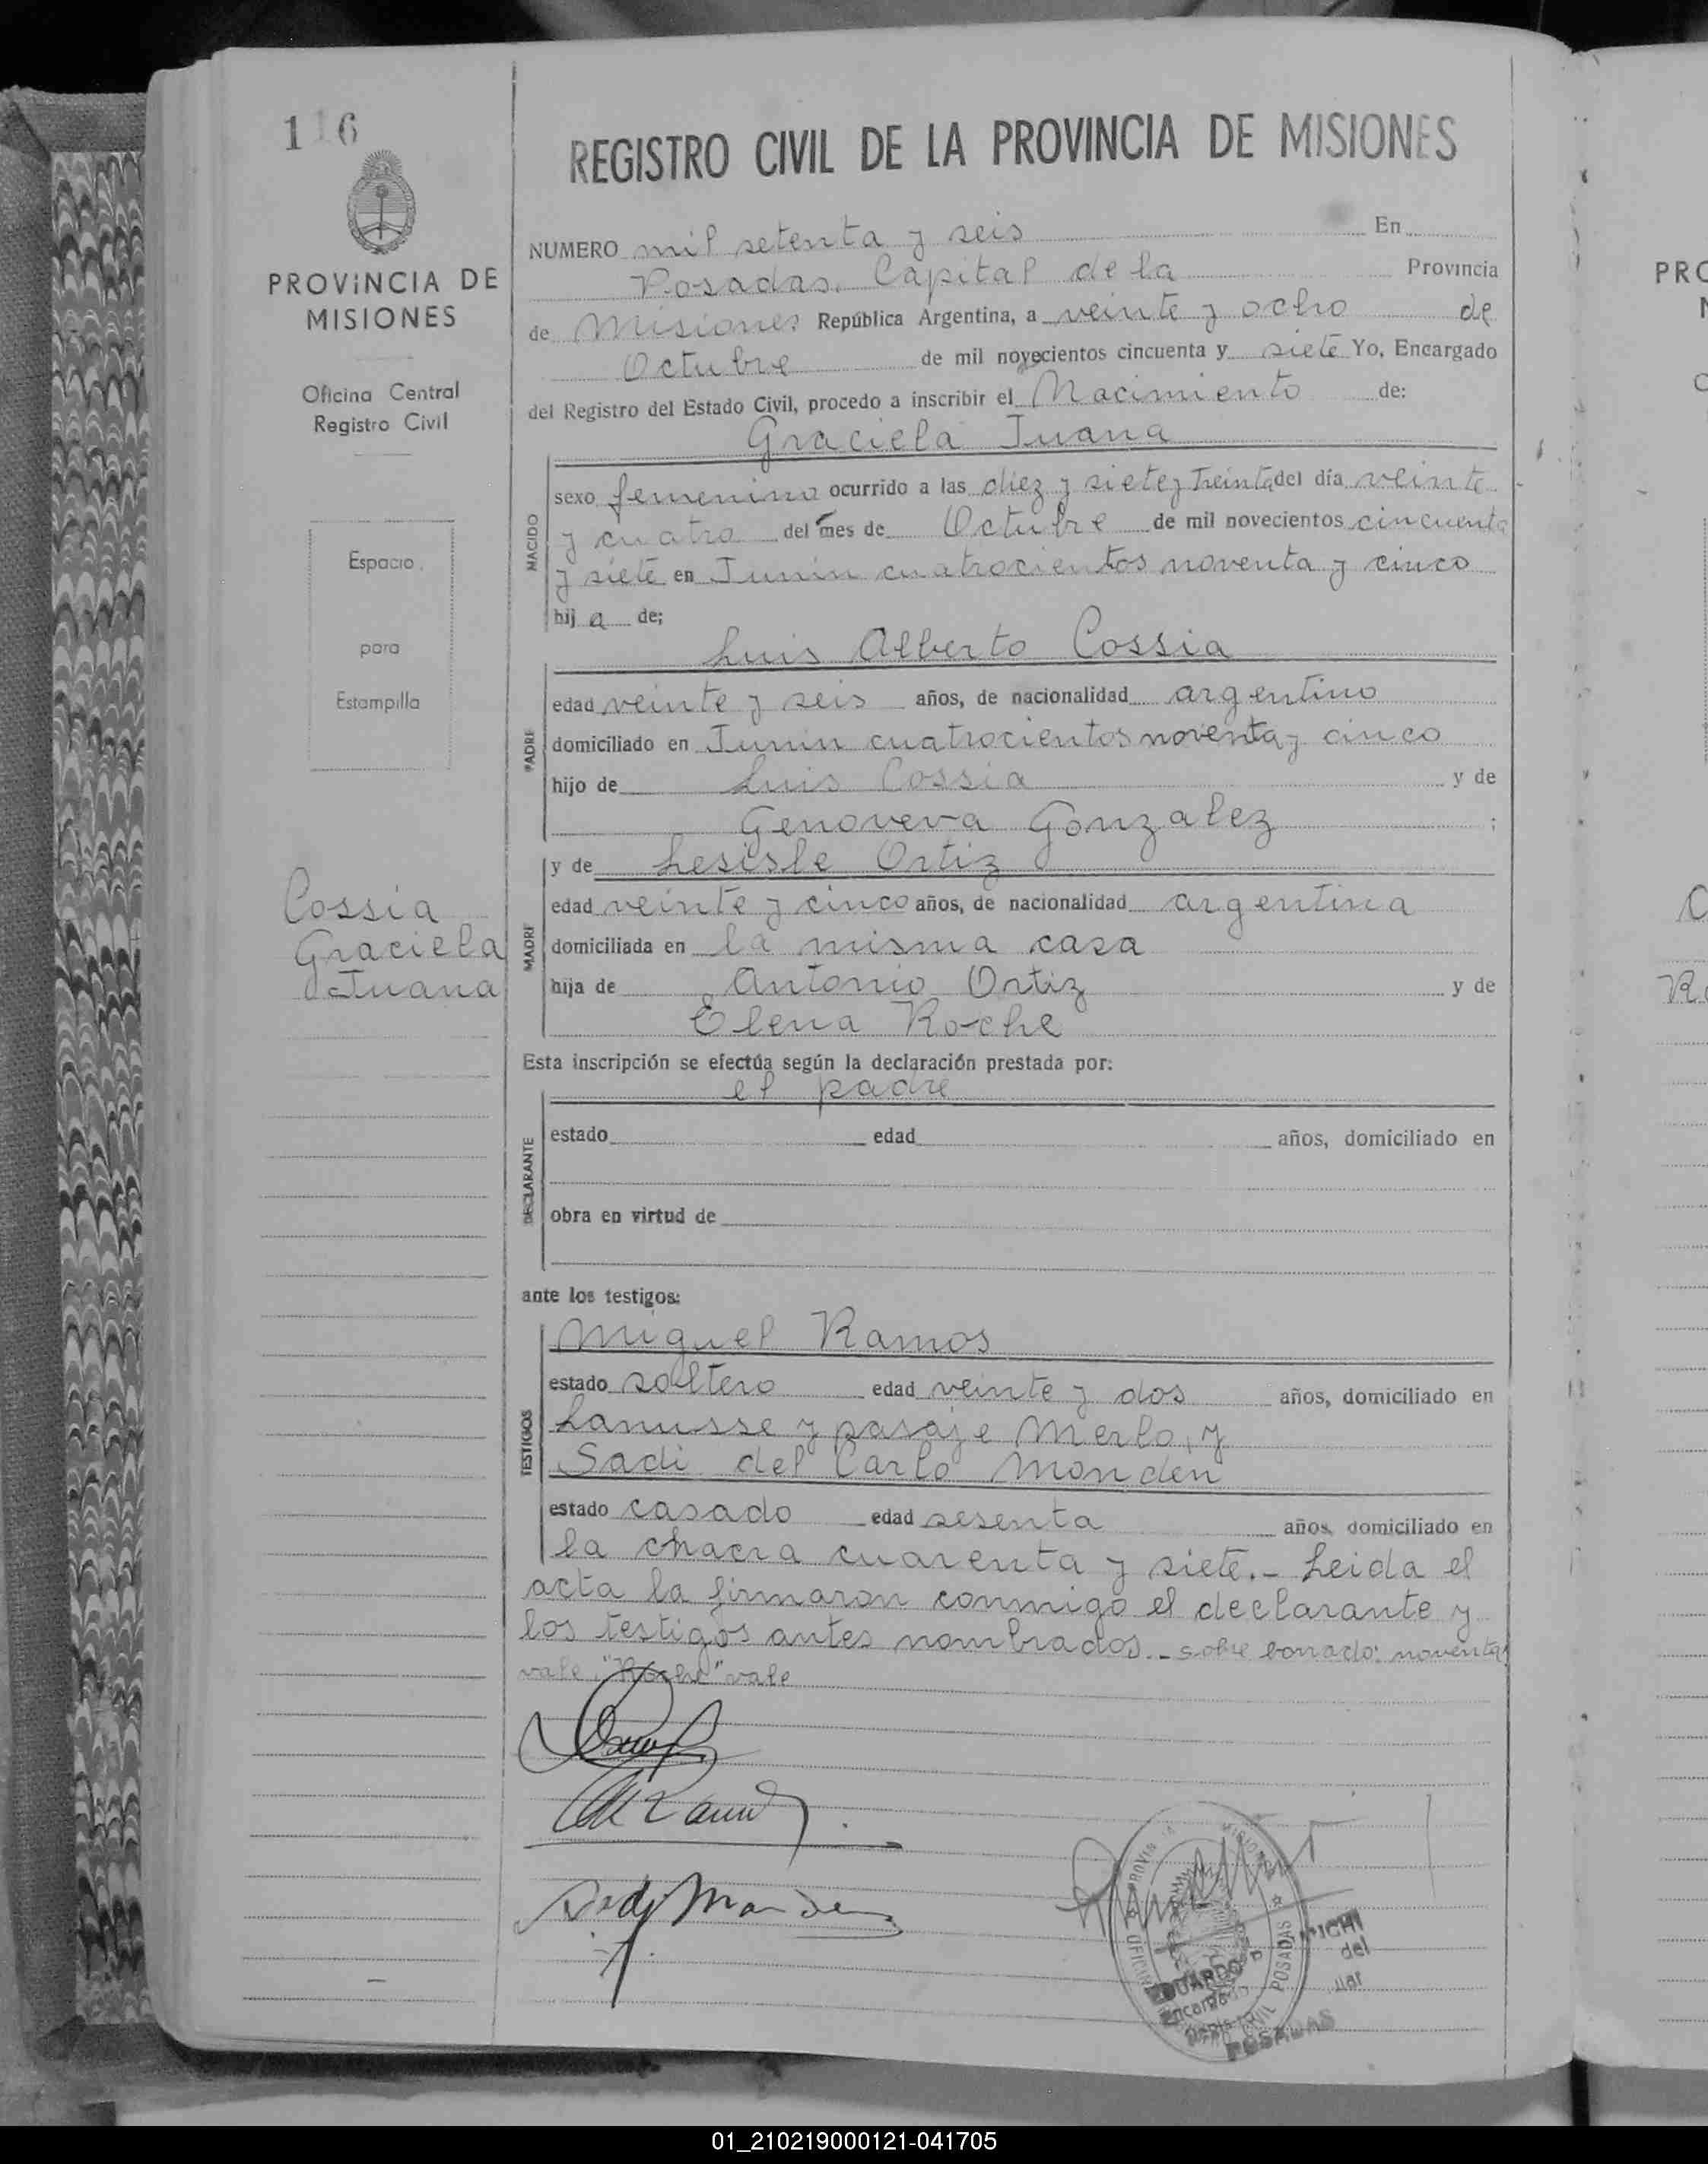 116
PROVINCIA DE
MISIONES
Oficina Central
Registro Civil
Espacio
para
Estampilla
Cossia
Graciela
Juana
REGISTRO CIVIL DE LA PROVINCIA DE MISIONES
NUMERO mil setenta y seis En
Posadas. Capital de la Provincia
de Misiones República Argentina, a veinte y ocho de
Octubre de mil novecientos cincuenta y siete Yo, Encargado
del Registro del Estado Civil, procedo a inscribir el Nacimiento de:
Graciela Juana
NACIDO
sexo femenino ocurrido a las diez y siete y treinta del día veinte
y cuatro del mes de Octubre de mil novecientos cincuenta
y siete en Junin cuatrocientos noventa y cinco
hij a de;
Luis Alberto Cossia
PADRE
edad veinte y seis años, de nacionalidad argentino
domiciliado en Junin cuatrocientos noventa y cinco
hijo de Luis Cossia y de
Genoveva Gonzalez ;
y de Lesisle Ortiz
MADRE
edad veinte y cinco años, de nacionalidad argentina
domiciliada en la misma casa
hija de Antonio Ortiz y de
Elena Roche
Esta inscripción se efectúa según la declaración prestada por:
el padre
DECLARANTE
estado edad años, domiciliado en
obra en virtud de
ante los testigos:
Miguel Ramos
TESTIGOS
estado soltero edad veinte y dos años, domiciliado en
Lanusse y pasaje Merlo, y
Sadi del Carlo Monden
estado casado edad sesenta años, domiciliado en
la chacra cuarenta y siete.- Leida el
acta la firmaron conmigo el declarante y
los testigos antes nombrados.- sobre borrado: noventa
vale "Roche" vale
POSADAS
EDUARDO
Encargado
del
POSADAS
PRO
01_210219000121-041705